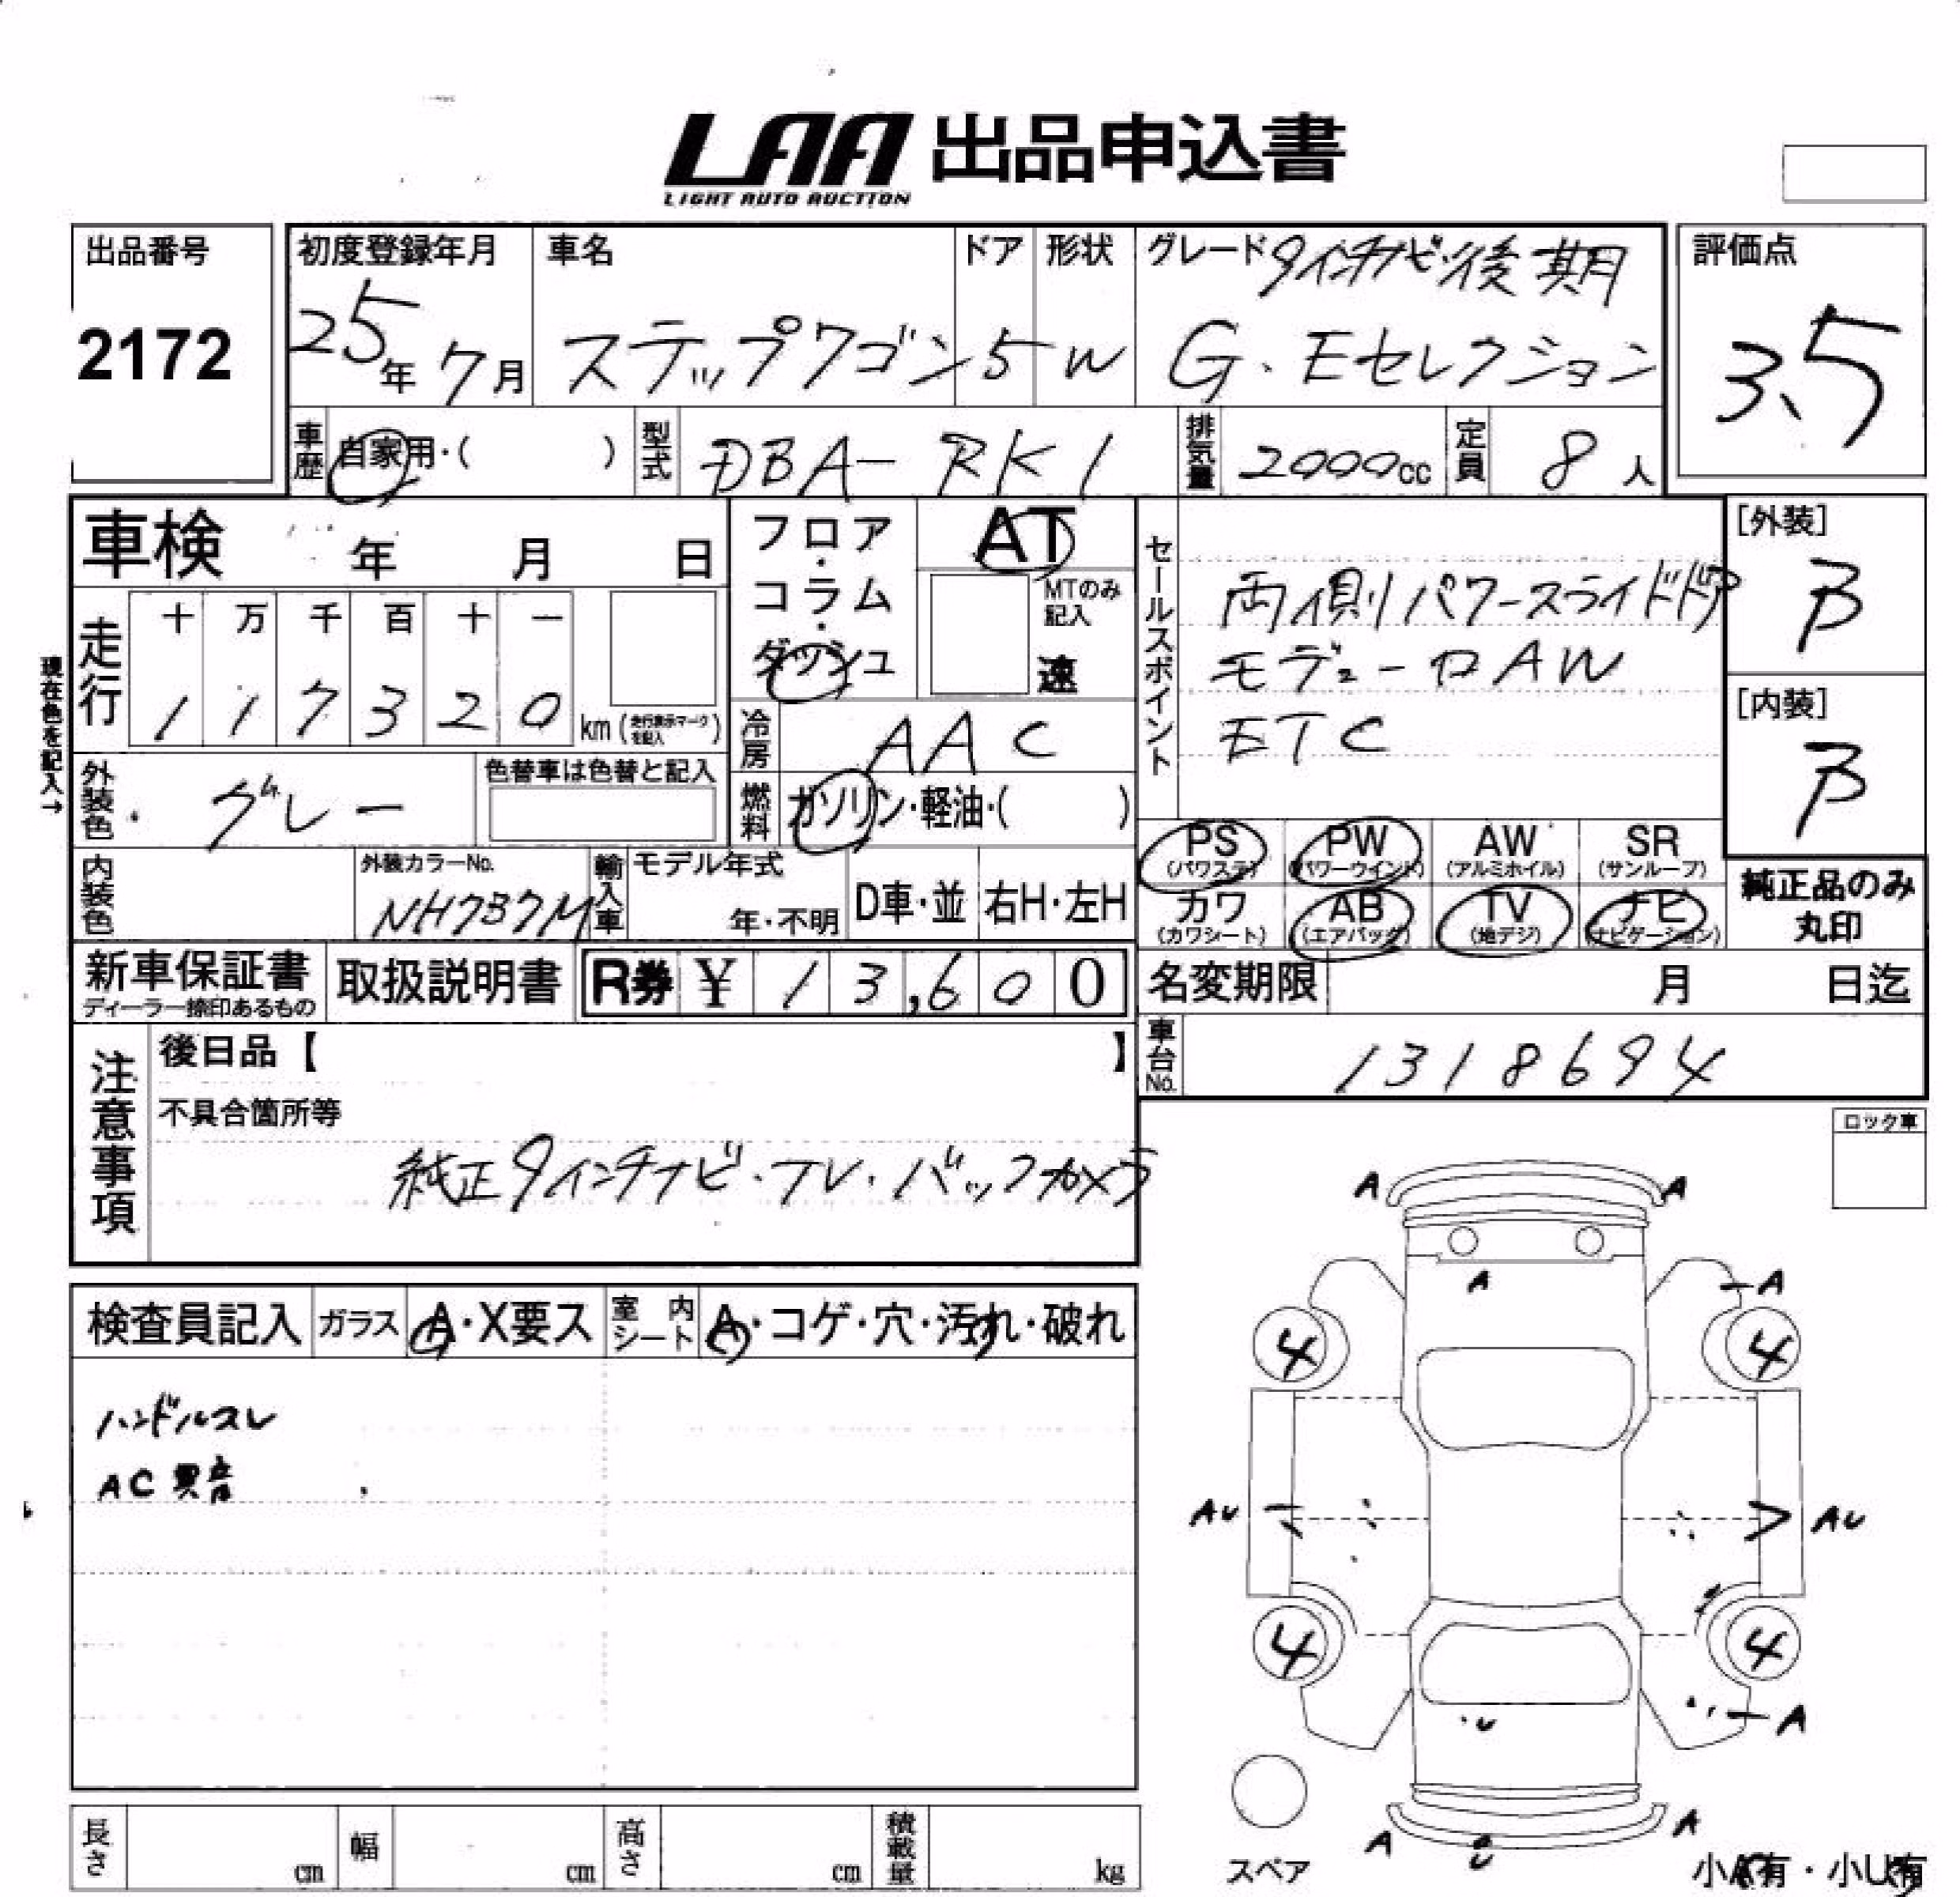 LAA 出品申込書
LIGHT AUTO AUCTION
出品番号
2172
初度登録年月
25年 7月
車名
ステップワゴン
ドア
5
形状
W
グレード 9インチナビ・後期
G・Eセレクション
評価点
3.5
車歴
自家用・( )
型式
DBA-RK1
排気量
2000cc
定員
8人
車検 年 月 日
フロア・コラム・ダッシュ
AT
MTのみ記入
速
セールスポイント
両側パワースライドドア
モデューロAW
ETC
[外装]
B
[内装]
B
現在色を記入→
走行
十 万 千 百 十 一
1 1 7 3 2 0 km (走行表示マークを記入)
冷房
AAC
外装色
グレー
色替車は色替と記入
燃料
ガソリン・軽油・( )
PS (パワステ) PW (パワーウインド) AW (アルミホイル) SR (サンルーフ)
カワ (カワシート) AB (エアバッグ) TV (地デジ) ナビ (ナビゲーション)
純正品のみ丸印
内装色
外装カラーNo.
NH737M
輸入車
モデル年式
年・不明
D車・並
右H・左H
新車保証書
ディーラー捺印あるもの
取扱説明書
R券 ¥ 13,600
名変期限 月 日迄
車台No.
1318694
注意事項
後日品【 】
不具合箇所等
純正9インチナビ・TV・バックカメラ
ロック車
検査員記入
ガラス A・X要ス
室内シート A・コゲ・穴・汚れ・破れ
ハンドルスレ
AC異音
A A
A A
4 4
AU AU
4 4
U A
A U A
スペア
小A有・小U有
長さ cm
幅 cm
高さ cm
積載量 kg